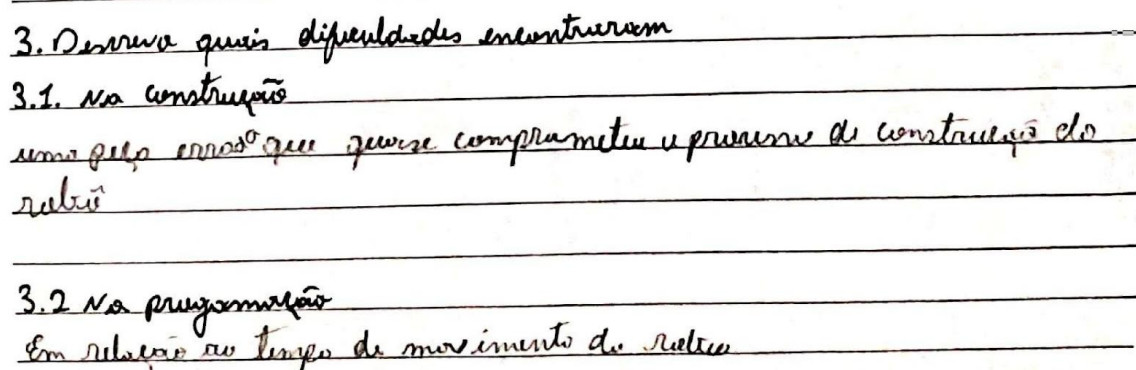 3. Descreva quais dificuldades encontraram
3.1. Na construção
uma peça errada que quase comprometeu o processo de construção do
robô
3.2 Na progamação
Em relação ao tempo de movimento do robo